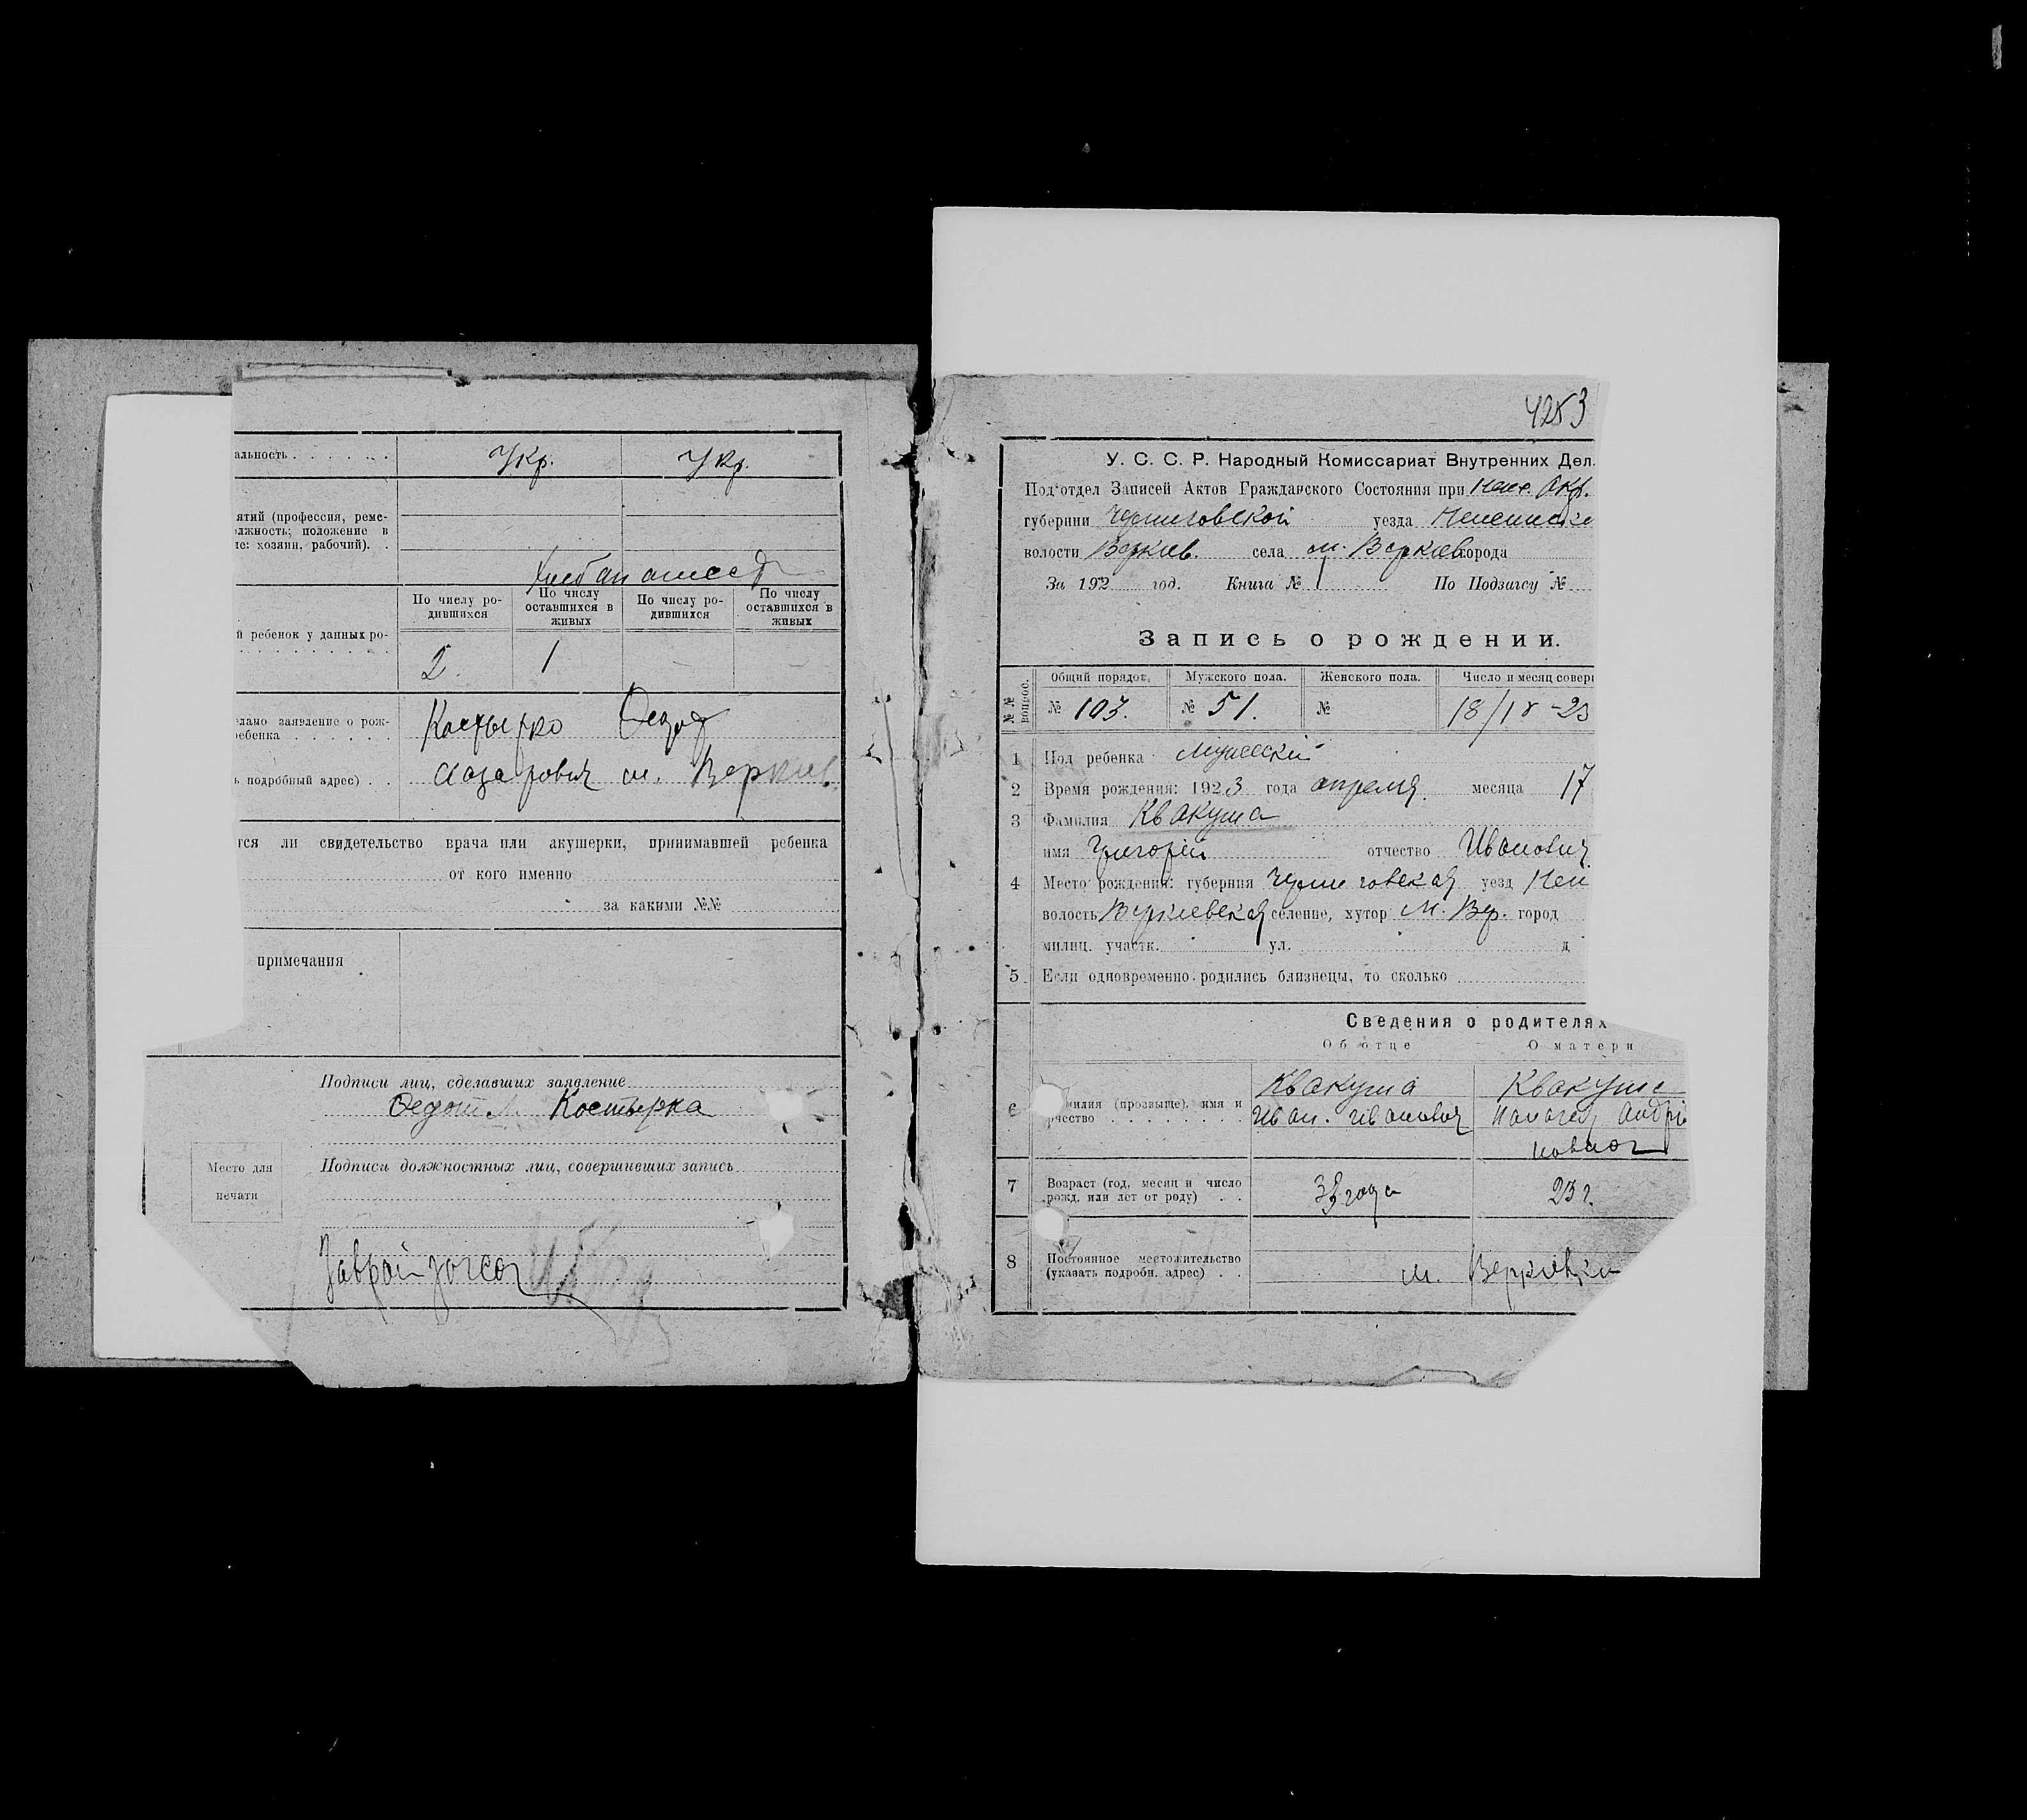 альность . . . . . . Укр. Укр.
ятий (профессия, реме-
олжность; положение в
ие: хозяин, рабочий). .
По числу ро-
дившихся
По числу
оставшихся в
живых
По числу ро-
дившихся
По числу
оставшихся в
живых
й ребенок у данных ро-
2. 1 — —
елано заявление о рож-
ребенка . . . . . . Костырко Федот
ь подробный адрес) . . Лазарович м. Веркиев.
тся ли свидетельство врача или акушерки, принимавшей ребенка
от кого именно
за какими №№
примечания
Подписи лиц, сделавших заявление
Федот Л. Костырка
Место для
печати
Подписи должностных лиц, совершивших запись
4253
У. С. С. Р. Народный Комиссариат Внутренних Дел.
Под'отдел Записей Актов Гражданского Состояния при Неж. Окр.
губернии Черниговской уезда Неженско
волости Веркиев. села м. Веркиев города
За 192 год. Книга № 1 По Подзагсу №
Запись о рождении.
№№ вопрос.
Общий порядок. Мужского пола. Женского пола. Число и месяц соверш
№ 103. № 51. № 18/IV-23
1 Пол ребенка Мужески
2 Время рождения: 1923 года апреля. месяца 17
3 Фамилия Квакуша
имя Григорий отчество Иванович
4 Место рождения: губерния Черниговская уезд Неж
волость Веркиевская селение, хутор М. Вер. город
милиц. участк. ул. д
5 Если одновременно родились близнецы, то сколько
Сведения о родителях
Об отце О матери
6 милия (прозвище), имя и
рчество . . . . . . . .
Квакуша
Иван. Иванович
Квакуша
Андрі
новна
7 Возраст (год, месяц и число
рожд. или лет от роду) . . 33 года 23 г.
8 Постоянное местожительство
(указать подробн. адрес) . . м. Веркиевки